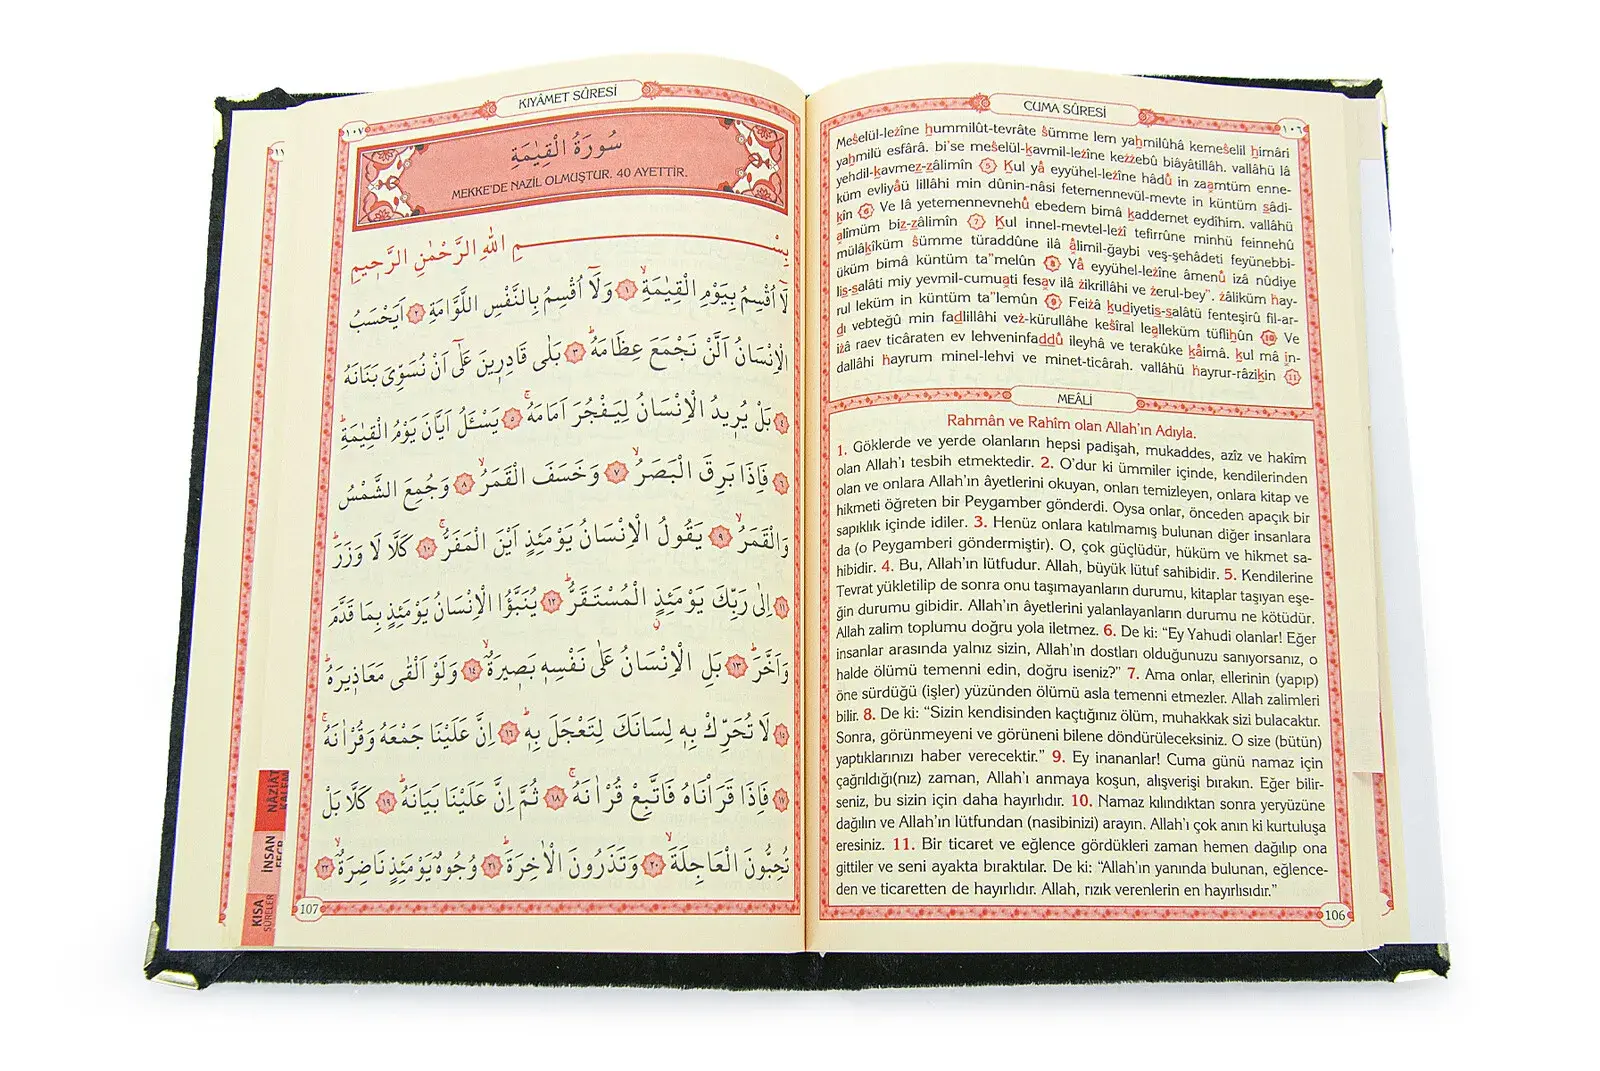 CUMA SÛRESİ
١٠٦
Meŝelül-leżîne hummilût-tevrâte ŝümme lem yaḥmilûhâ kemeŝelil ḥimâri
yaḥmilü esfârâ. bi'se meŝelül-ḳavmil-leżîne keżżebû biâyâtillâh. vallâhü lâ
yehdil-ḳavmeẓ-ẓâlimîn 5 Ḳul yâ eyyühel-leżîne hâdû in zaamtüm enne-
küm evliyâü lillâhi min dûnin-nâsi fetemennevül-mevte in küntüm ṣâdi-
ḳîn 6 Ve lâ yetemennevnehû ebedem bimâ ḳaddemet eydîhim. vallâhü
alîmüm biẓ-ẓâlimîn 7 Ḳul innel-mevtel-leżî tefirrûne minhü feinnehû
mülâḳîküm ŝümme türaddûne ilâ âlimil-ğaybi veş-şehâdeti feyünebbi-
üküm bimâ küntüm ta"melûn 8 Yâ eyyühel-leżîne âmenû iżâ nûdiye
liṣ-ṣalâti miy yevmil-cumuati fesav ilâ żikrillâhi ve żerul-bey". żâliküm ḫay-
rul leküm in küntüm ta"lemûn 9 Feiżâ ḳuḍiyetiṣ-ṣalâtü fenteşirû fil-ar-
ḍı vebteğû min faḍlillâhi veż-kürullâhe keŝîral lealleküm tüfliḥûn 10 Ve
iżâ raev ticâraten ev lehveninfaḍḍû ileyhâ ve terakûke ḳâimâ. ḳul mâ in-
dallâhi ḫayrum minel-lehvi ve minet-ticârah. vallâhü ḫayrur-râziḳîn 11
MEÂLİ
Rahmân ve Rahîm olan Allah'ın Adıyla.
1. Göklerde ve yerde olanların hepsi padişah, mukaddes, azîz ve hakîm
olan Allah'ı tesbih etmektedir. 2. O'dur ki ümmiler içinde, kendilerinden
olan ve onlara Allah'ın âyetlerini okuyan, onları temizleyen, onlara kitap ve
hikmeti öğreten bir Peygamber gönderdi. Oysa onlar, önceden apaçık bir
sapıklık içinde idiler. 3. Henüz onlara katılmamış bulunan diğer insanlara
da (o Peygamberi göndermiştir). O, çok güçlüdür, hüküm ve hikmet sa-
hibidir. 4. Bu, Allah'ın lütfudur. Allah, büyük lütuf sahibidir. 5. Kendilerine
Tevrat yükletilip de sonra onu taşımayanların durumu, kitaplar taşıyan eşe-
ğin durumu gibidir. Allah'ın âyetlerini yalanlayanların durumu ne kötüdür.
Allah zalim toplumu doğru yola iletmez. 6. De ki: "Ey Yahudi olanlar! Eğer
insanlar arasında yalnız sizin, Allah'ın dostları olduğunuzu sanıyorsanız, o
halde ölümü temenni edin, doğru iseniz?" 7. Ama onlar, ellerinin (yapıp)
öne sürdüğü (işler) yüzünden ölümü asla temenni etmezler. Allah zalimleri
bilir. 8. De ki: "Sizin kendisinden kaçtığınız ölüm, muhakkak sizi bulacaktır.
Sonra, görünmeyeni ve görüneni bilene döndürüleceksiniz. O size (bütün)
yaptıklarınızı haber verecektir." 9. Ey inananlar! Cuma günü namaz için
çağrıldığı(nız) zaman, Allah'ı anmaya koşun, alışverişi bırakın. Eğer bilir-
seniz, bu sizin için daha hayırlıdır. 10. Namaz kılındıktan sonra yeryüzüne
dağılın ve Allah'ın lütfundan (nasibinizi) arayın. Allah'ı çok anın ki kurtuluşa
eresiniz. 11. Bir ticaret ve eğlence gördükleri zaman hemen dağılıp ona
gittiler ve seni ayakta bıraktılar. De ki: "Allah'ın yanında bulunan, eğlence-
den ve ticaretten de hayırlıdır. Allah, rızık verenlerin en hayırlısıdır."
106
KIYÂMET SÛRESİ
١٠٧
سُورَةُ الْقِيٰمَةِ
MEKKE'DE NAZİL OLMUŞTUR. 40 AYETTİR.
بِسْمِ اللّٰهِ الرَّحْمٰنِ الرَّحٖيمِ
لَٓا اُقْسِمُ بِيَوْمِ الْقِيٰمَةِۙ ١ وَلَٓا اُقْسِمُ بِالنَّفْسِ اللَّوَّامَةِ ٢ اَيَحْسَبُ
الْاِنْسَانُ اَلَّنْ نَجْمَعَ عِظَامَهُۜ ٣ بَلٰى قَادِرٖينَ عَلٰٓى اَنْ نُسَوِّيَ بَنَانَهُ
٤ بَلْ يُرٖيدُ الْاِنْسَانُ لِيَفْجُرَ اَمَامَهُۚ ٥ يَسْـَٔلُ اَيَّانَ يَوْمُ الْقِيٰمَةِۜ
٦ فَاِذَا بَرِقَ الْبَصَرُۙ ٧ وَخَسَفَ الْقَمَرُۙ ٨ وَجُمِعَ الشَّمْسُ
وَالْقَمَرُۙ ٩ يَقُولُ الْاِنْسَانُ يَوْمَئِذٍ اَيْنَ الْمَفَرُّۚ ١٠ كَلَّا لَا وَزَرَۜ
١١ اِلٰى رَبِّكَ يَوْمَئِذٍ الْمُسْتَقَرُّۜ ١٢ يُنَبَّؤُا الْاِنْسَانُ يَوْمَئِذٍ بِمَا قَدَّمَ
وَاَخَّرَۜ ١٣ بَلِ الْاِنْسَانُ عَلٰى نَفْسِهٖ بَصٖيرَةٌۙ ١٤ وَلَوْ اَلْقٰى مَعَاذٖيرَهُۜ
١٥ لَا تُحَرِّكْ بِهٖ لِسَانَكَ لِتَعْجَلَ بِهٖۜ ١٦ اِنَّ عَلَيْنَا جَمْعَهُ وَقُرْاٰنَهُۚ
١٧ فَاِذَا قَرَاْنَاهُ فَاتَّبِعْ قُرْاٰنَهُۚ ١٨ ثُمَّ اِنَّ عَلَيْنَا بَيَانَهُۜ ١٩ كَلَّا بَلْ
تُحِبُّونَ الْعَاجِلَةَۙ ٢٠ وَتَذَرُونَ الْاٰخِرَةَۜ ٢١ وُجُوهٌ يَوْمَئِذٍ نَاضِرَةٌۙ ٢٢
107
NÂZİÂT
İNSAN
KISA
SÛRELER